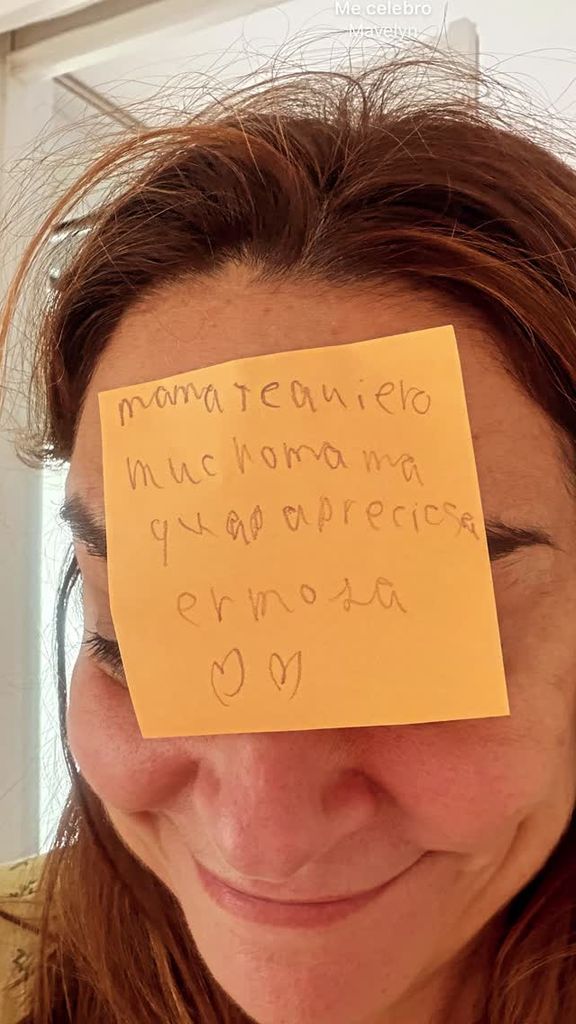 Me celebro
Mavelyn
mama te quiero
muchomama
guapapreciosa
ermosa